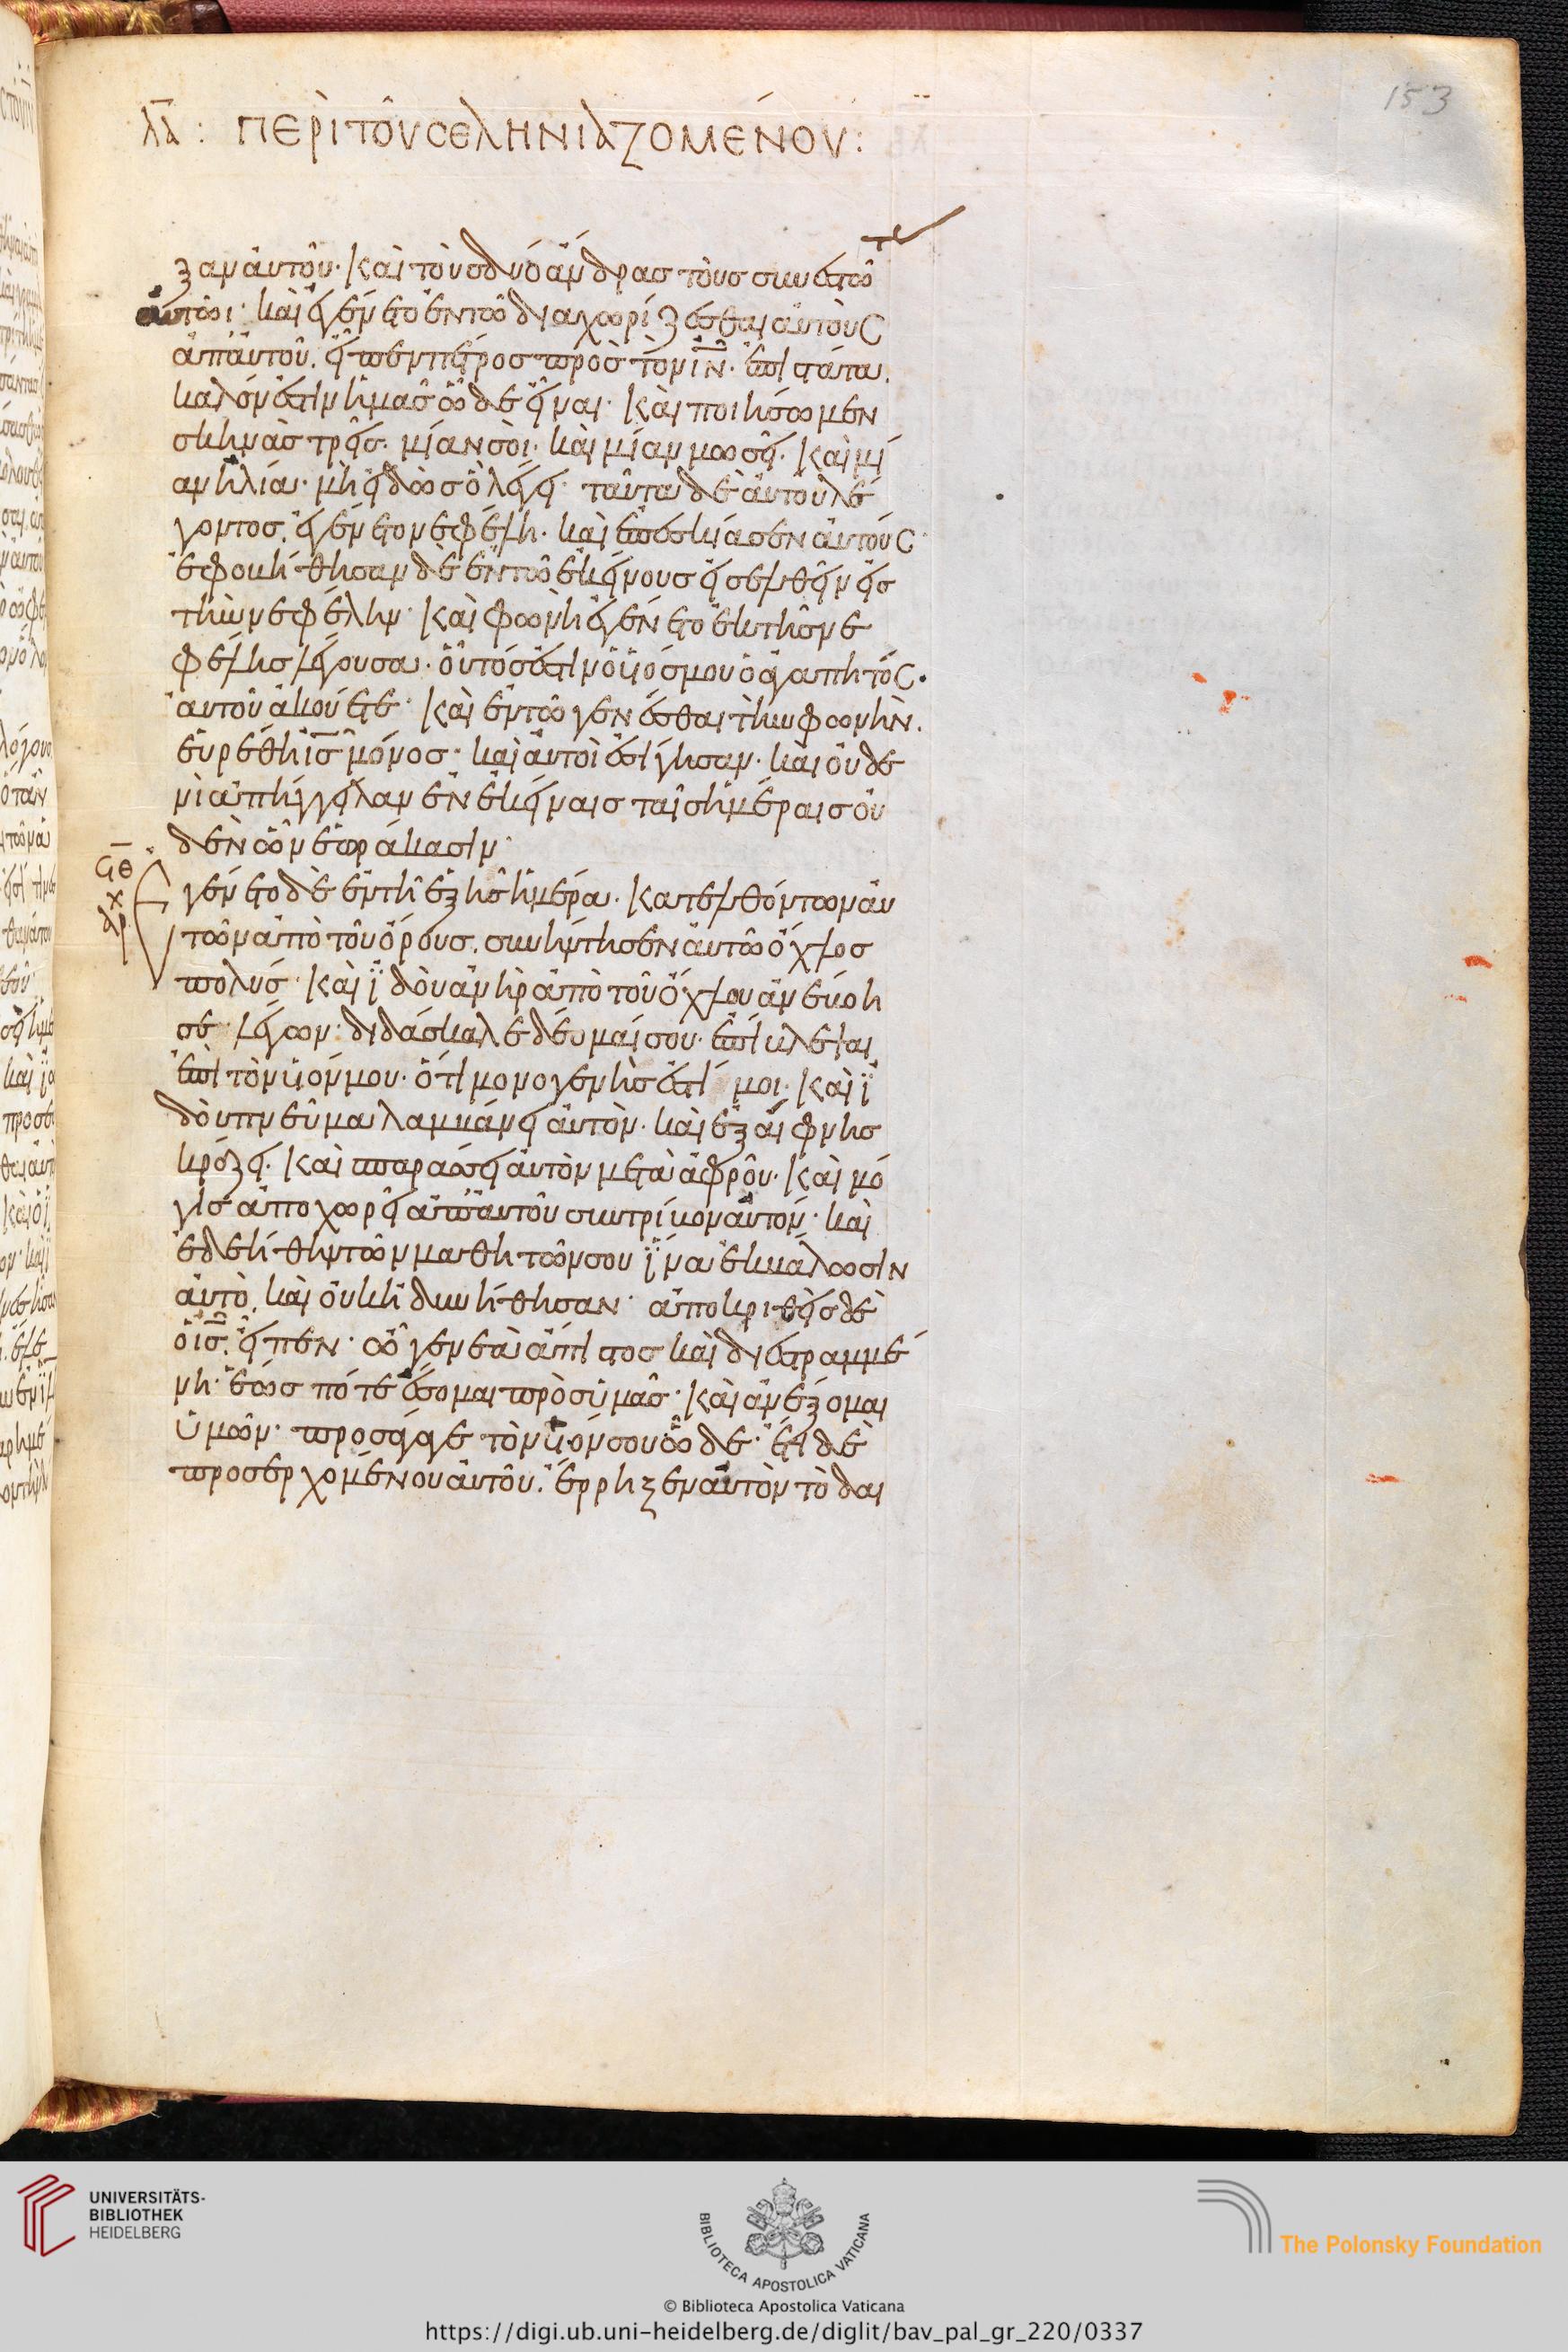 153
λα : περὶ τοῦ σεληνιαζομένου:
ξαν αὐτοῦ· καὶ τοὺς δύο ἄνδρας τοὺς συνεστῶ
αὐτῶι· καὶ ἐγένετο ἐν τῶ διαχωρίζεσθαι αὐτοὺς
ἀπ αὐτοῦ. εἶπεν πέτρος πρὸς τὸν ι̅ν̅· ἐπιστάτα.
καλόν ἐστιν ἡμᾶς ὧδε εἶναι· καὶ ποιήσωμεν
σκηνὰς τρεῖς· μίαν σοὶ· καὶ μίαν μωσεῖ· καὶ μί
αν ἡλία· μὴ εἰδὼς ὃ λέγει· ταῦτα δὲ αὐτοῦ λέ
γοντος. ἐγένετο νεφέλη· καὶ ἐπεσκίασεν αὐτούς·
ἐφοβήθησαν δὲ ἐν τῶ ἐκείνους εἰσελθεῖν εἰς
τὴν νεφέλην· καὶ φωνὴ ἐγένετο ἐκ τῆς νε
φέλης λέγουσα· οὗτός ἐστιν ὁ υἱός μου ὁ ἀγαπητός.
αὐτοῦ ἀκούετε· καὶ ἐν τῶ γενέσθαι τὴν φωνὴν.
εὑρέθη ι̅ς̅ μόνος· καὶ αὐτοὶ ἐσίγησαν· καὶ οὐδε
νὶ ἀπήγγειλαν ἐν ἐκείναις ταῖς ἡμέραις οὐ
δὲν ὧν ἑωράκασιν·
αρχ
Ἐγένετο δὲ ἐν τῆ ἑξῆς ἡμέρα· κατελθόντων αὐ
τῶν ἀπὸ τοῦ ὄρους. συνήντησεν αὐτῶ ὄχλος
πολύς· καὶ ἰδοὺ ἀνὴρ ἀπὸ τοῦ ὄχλου ἀνεβόη
σε· λέγων: διδάσκαλε δέομαί σου· ἐπίβλεψαι
ἐπὶ τὸν υἱόν μου· ὅτι μονογενής ἐστί μοι· καὶ ἰ
δοὺ πνεῦμα λαμβάνει αὐτὸν· καὶ ἐξαίφνης
κράζει· καὶ σπαράσσει αὐτὸν μετὰ ἀφροῦ· καὶ μό
γις ἀποχωρεῖ ἀπ αὐτοῦ συντρίβον αὐτόν· καὶ
ἐδεήθην τῶν μαθητῶν σου ἵνα ἐκβάλωσιν
αὐτὸ. καὶ οὐκ ἠδυνήθησαν· ἀποκριθεὶς δὲ
ὁ ι̅ς̅. εἶπεν· ὦ γενεὰ ἄπιστος καὶ διεστραμμέ
νη· ἕως πότε ἔσομαι πρὸς ὑμᾶς· καὶ ἀνέξομαι
ὑμῶν· προσάγαγε τὸν υἱόν σου ὧδε· ἔτι δὲ
προσερχομένου αὐτοῦ. ἔρρηξεν αὐτὸν τὸ δαι
UNIVERSITÄTS-
BIBLIOTHEK
HEIDELBERG
BIBLIOTECA APOSTOLICA VATICANA
The Polonsky Foundation
© Biblioteca Apostolica Vaticana
https://digi.ub.uni-heidelberg.de/diglit/bav_pal_gr_220/0337